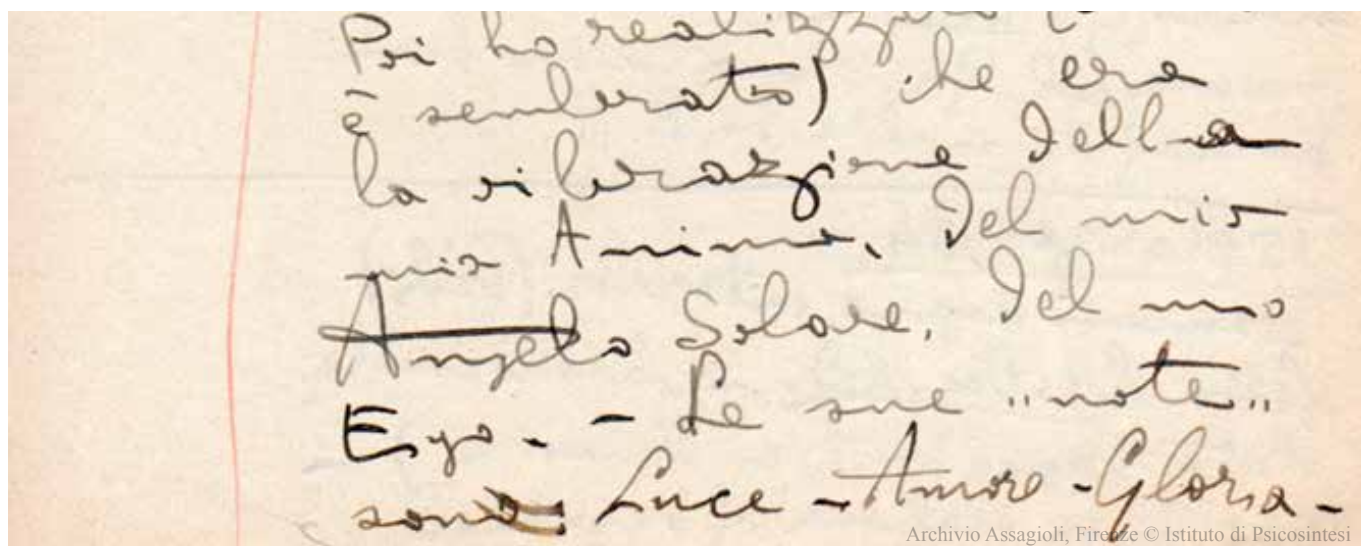 Poi ho realizzato (
è sembrato) che era
la vibrazione della
mia Anima, del mio
Angelo Solare, del mio
Ego. - Le sue "note"
sono: Luce - Amore - Gloria -
Archivio Assagioli, Firenze © Istituto di Psicosintesi